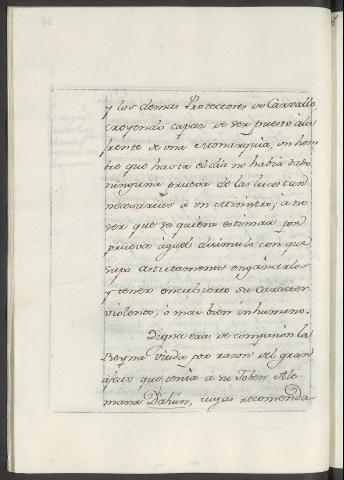 y los demas Protectores de Carvallo,
creyendo capaz de ser puesto á la
frente de una Monarquia, un hom
bre que hasta el dia no habia dado
ninguna prueva de las luces tan
necesarias á un Ministro; á no
ser que se quiera estimar por
prueva aquel disimulo con que
supo astutamente engañarlos
y tener encubierto su caracter
violento, ó mas bien inhumano.
Digna era de compasion la
Reyna Viuda, por razon del gran
afecto que tenia á su Joben Ale
mana Dahun, cuyas recomenda